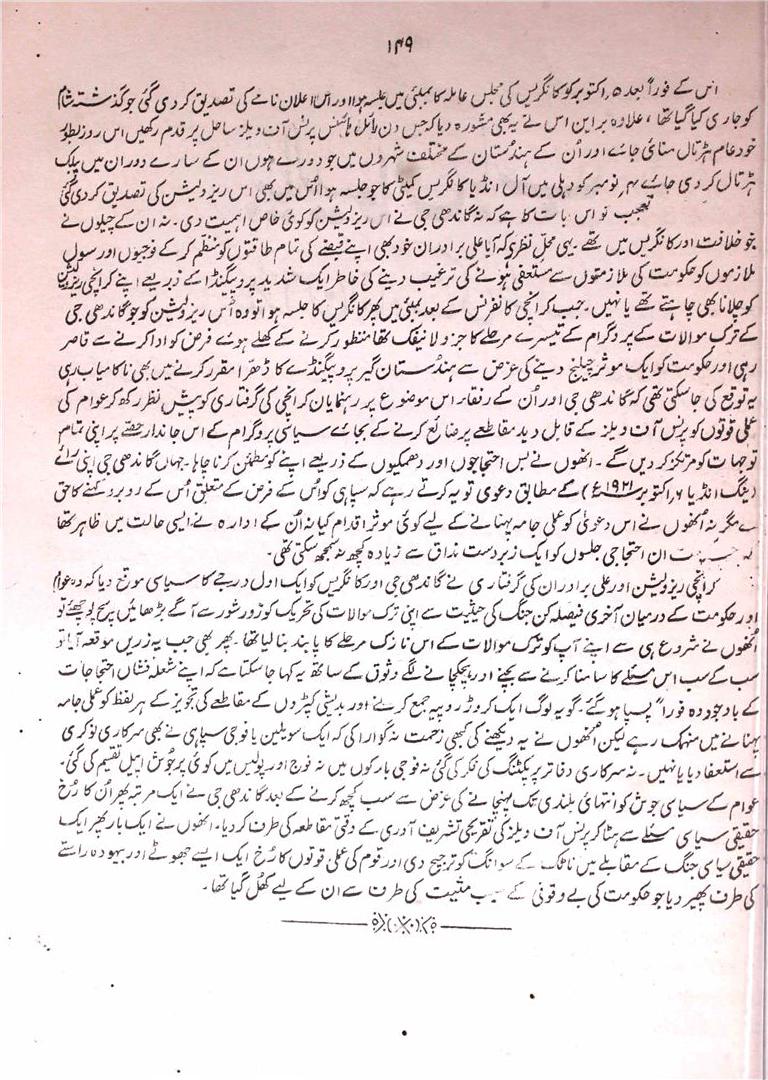 ۱۴۹
اس کے فوراً بعد ۵؍ اکتوبر کو کانگریس کی مجلس عاملہ کا بمبئی میں جلسہ ہوا اور اس اعلان نامے کی تصدیق کر دی گئی جو گذشتہ شام
کو جاری کیا گیا تھا ، علاوہ بر این اس نے یہ بھی مشورہ دیا کہ جس دن رائل ہائنس پرنس آف ویلز ساحل پر قدم رکھیں اس روز بطور
خود عام ہڑتال منائی جائے اور اُن کے ہندوستان کے مختلف شہروں میں جو دورے ہوں ان کے سارے دوران میں پبلک
ہڑتال کر دی جائے ۴؍ نومبر کو دہلی میں آل انڈیا کانگریس کمیٹی کا جو جلسہ ہوا اُس میں بھی اس ریزولیشن کی تصدیق کر دی گئی
تعجب تو اس بات کا ہے کہ نہ گاندھی جی نے اس ریزولیشن کو کوئی خاص اہمیت دی ۔ نہ ان کے چیلوں نے
جو خلافت اور کانگریس میں تھے ۔ یہی محل نظر ہے کہ آیا علی برادران خود بھی اپنے قبضے کی تمام طاقتوں کو منظم کر کے فوجیوں اور سول
ملازموں کو حکومت کی ملازمتوں سے مستعفی ہونے کی ترغیب دینے کی خاطر ایک شدید پروپیگنڈا کے ذریعے اپنے کراچی ریزولیشن
کو چلانا بھی چاہتے تھے یا نہیں ۔ جب کراچی کانفرنس کے بعد بمبئی میں پھر کانگریس کا جلسہ ہوا تو وہ اُس ریزولیشن کو جو گاندھی جی
کے ترک موالات کے پروگرام کے تیسرے مرحلے کا جزو لاینفک تھا منظور کرنے کے کھلے ہوئے فرض کو ادا کرنے سے قاصر
رہی اور حکومت کو ایک موثر چیلنج دینے کی غرض سے ہندوستان گیر پروپیگنڈے کا ڈھرا مقرر کرنے میں بھی ناکامیاب رہی
یہ توقع کی جا سکتی تھی کہ گاندھی جی اور اُن کے رفقاء اس موضوع پر رہنمایان کراچی کی گرفتاری کو پیش نظر رکھ کر عوام کی
عملی قوتوں کو پرنس آف ویلز کے قابل دید مقاطعے پر ضائع کرنے کے بجائے سیاسی پروگرام کے اس جاندار حصے پر اپنی تمام
توجہات کو مرتکز کر دیں گے ۔ انھوں نے بس احتجاجوں اور دھمکیوں کے ذریعے اپنے کو مطمئن کرنا چاہا ۔ جہاں گاندھی جی اپنی رائے
(ینگ انڈیا ۶؍ اکتوبر ۱۹۲۱ء) کے مطابق دعویٰ تو یہ کرتے رہے کہ سپاہی کو اُس کے فرض کے متعلق اُس کے روبرو کہنے کا حق
ہے مگر نہ اُنھوں نے اس دعویٰ کو عملی جامہ پہنانے کے لیے کوئی موثر اقدام کیا نہ اُن کے ادارہ نے ۔ ایسی حالت میں ظاہر تھا
کہ ان احتجاجی جلسوں کو ایک زبردست مذاق سے زیادہ کچھ نہ سمجھ سکتی تھی ۔
کراچی ریزولیشن اور علی برادران کی گرفتاری نے گاندھی جی اور کانگریس کو ایک اول درجے کا سیاسی موقع دیا کہ وہ عوام
اور حکومت کے درمیان آخری فیصلہ کن جنگ کی حیثیت سے اپنی ترک موالات کی تحریک کو زور شور سے آگے بڑھائیں سچ پوچھئے تو
اُنھوں نے شروع ہی سے اپنے آپ کو ترک موالات کے اس نازک مرحلے کا پابند بنا لیا تھا ۔ پھر بھی جب یہ زریں موقعہ آیا تو
سب کے سب اس مسئلے کا سامنا کرنے سے بچنے اور ہچکچانے لگے وثوق کے ساتھ یہ کہا جا سکتا ہے کہ اپنے شعلہ فشاں احتجاجات
کے باوجود وہ فوراً پسپا ہو گئے ۔ گو یہ لوگ ایک کروڑ روپیہ جمع کرنے اور بدیشی کپڑوں کے مقاطعے کی تجویز کے ہر لفظ کو عملی جامہ
پہنانے میں منہمک رہے لیکن اُنھوں نے یہ دیکھنے کی کبھی زحمت نہ گوارا کی کہ ایک سویلین یا فوجی سپاہی نے بھی سرکاری نوکری
سے استعفا دیا یا نہیں ۔ نہ سرکاری دفاتر پر پکٹنگ کی فکر کی گئی نہ فوجی بارکوں میں نہ فوج اور پولیس میں کوئی پرجوش اپیل تقسیم کی گئی ۔
عوام کے سیاسی جوش کو انتہائی بلندی تک پہنچانے کی غرض سے سب کچھ کرنے کے بعد گاندھی جی نے ایک مرتبہ پھر اُن کا رُخ
حقیقی سیاسی مسئلے سے ہٹا کر پرنس آف ویلز کی تفریحی تشریف آوری کے وقتی مقاطعہ کی طرف کر دیا ۔ انھوں نے ایک بار پھر ایک
حقیقی سیاسی جنگ کے مقابلے میں ناٹک کے سوانگ کو ترجیح دی اور قوم کی عملی قوتوں کا رُخ ایک ایسے جھوٹے اور بیہودہ راستے
کی طرف پھیر دیا جو حکومت کی بے وقوفی کے سبب مشیت کی طرف سے ان کے لیے کھُل گیا تھا ۔